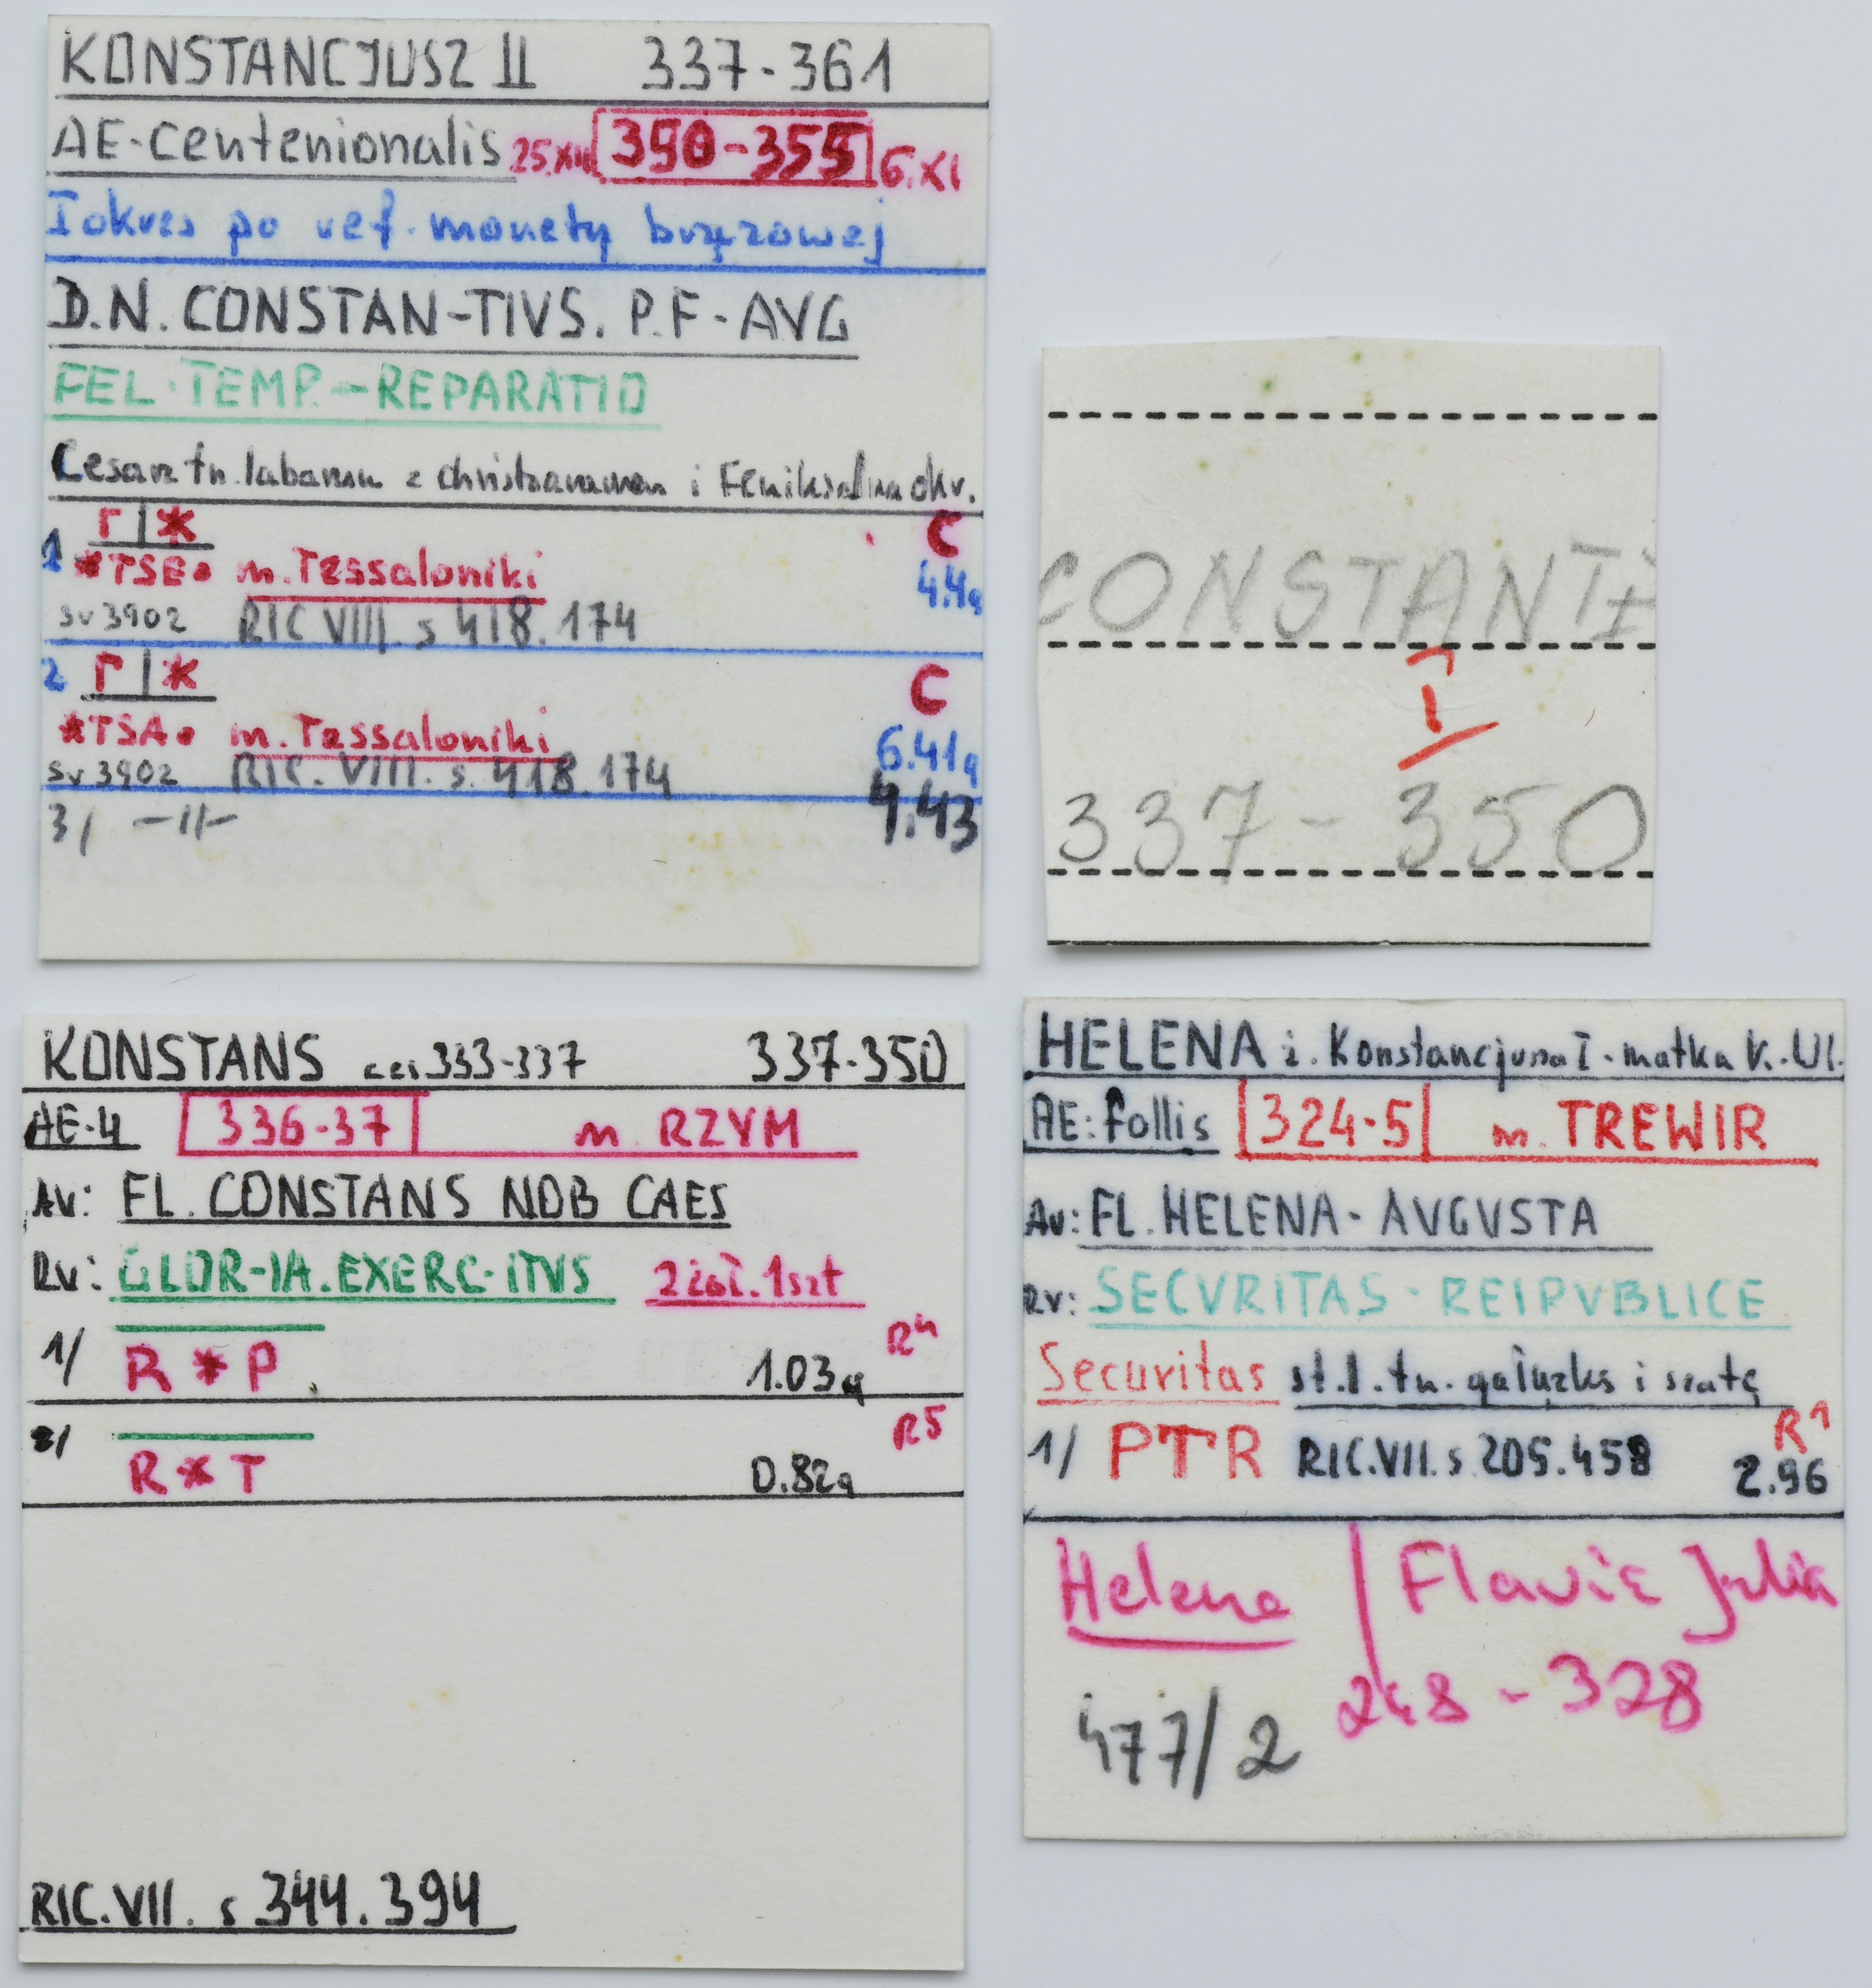 KONSTANCJUSZ II 337-361
AE-Centenionalis 25.XII 350-355 6.XI
I okres po ref. monety brązowej
D.N. CONSTAN-TIVS. P.F-AVG
FEL·TEMP.-REPARATIO
Cesarz tn. labarum z christogramem i Feniksa na okr.
1 Γ|* C
*TSE• m. Tessaloniki 4.4g
sv 3902 RIC VIII. s 418.174
2 Γ|* C
*TSA• m. Tessaloniki 6.41g
sv 3902 RIC. VIII. s. 418.174
3/ -11- 4.43
CONSTANT
I
337-350
KONSTANS cez 333-337 337-350
AE-4 336-37 m RZYM
Av: FL. CONSTANS NOB CAES
Rv: GLOR-IA.EXERC-ITVS 2 żoł. 1szt
1/ R*P 1.03g R4
2/ R*T 0.82g R5
RIC.VII. s 344.394
HELENA ż. Konstancjusza I - matka K. Wl.
AE: follis 324-5 m. TREWIR
Av: FL. HELENA - AVGVSTA
Rv: SECVRITAS - REIPVBLICE
Securitas st.l.tn. gałązkę i szatę
1/ PTR RIC.VII.s 205.458 R1
2.96
Helena / Flavia Julia
248 - 328
477/2